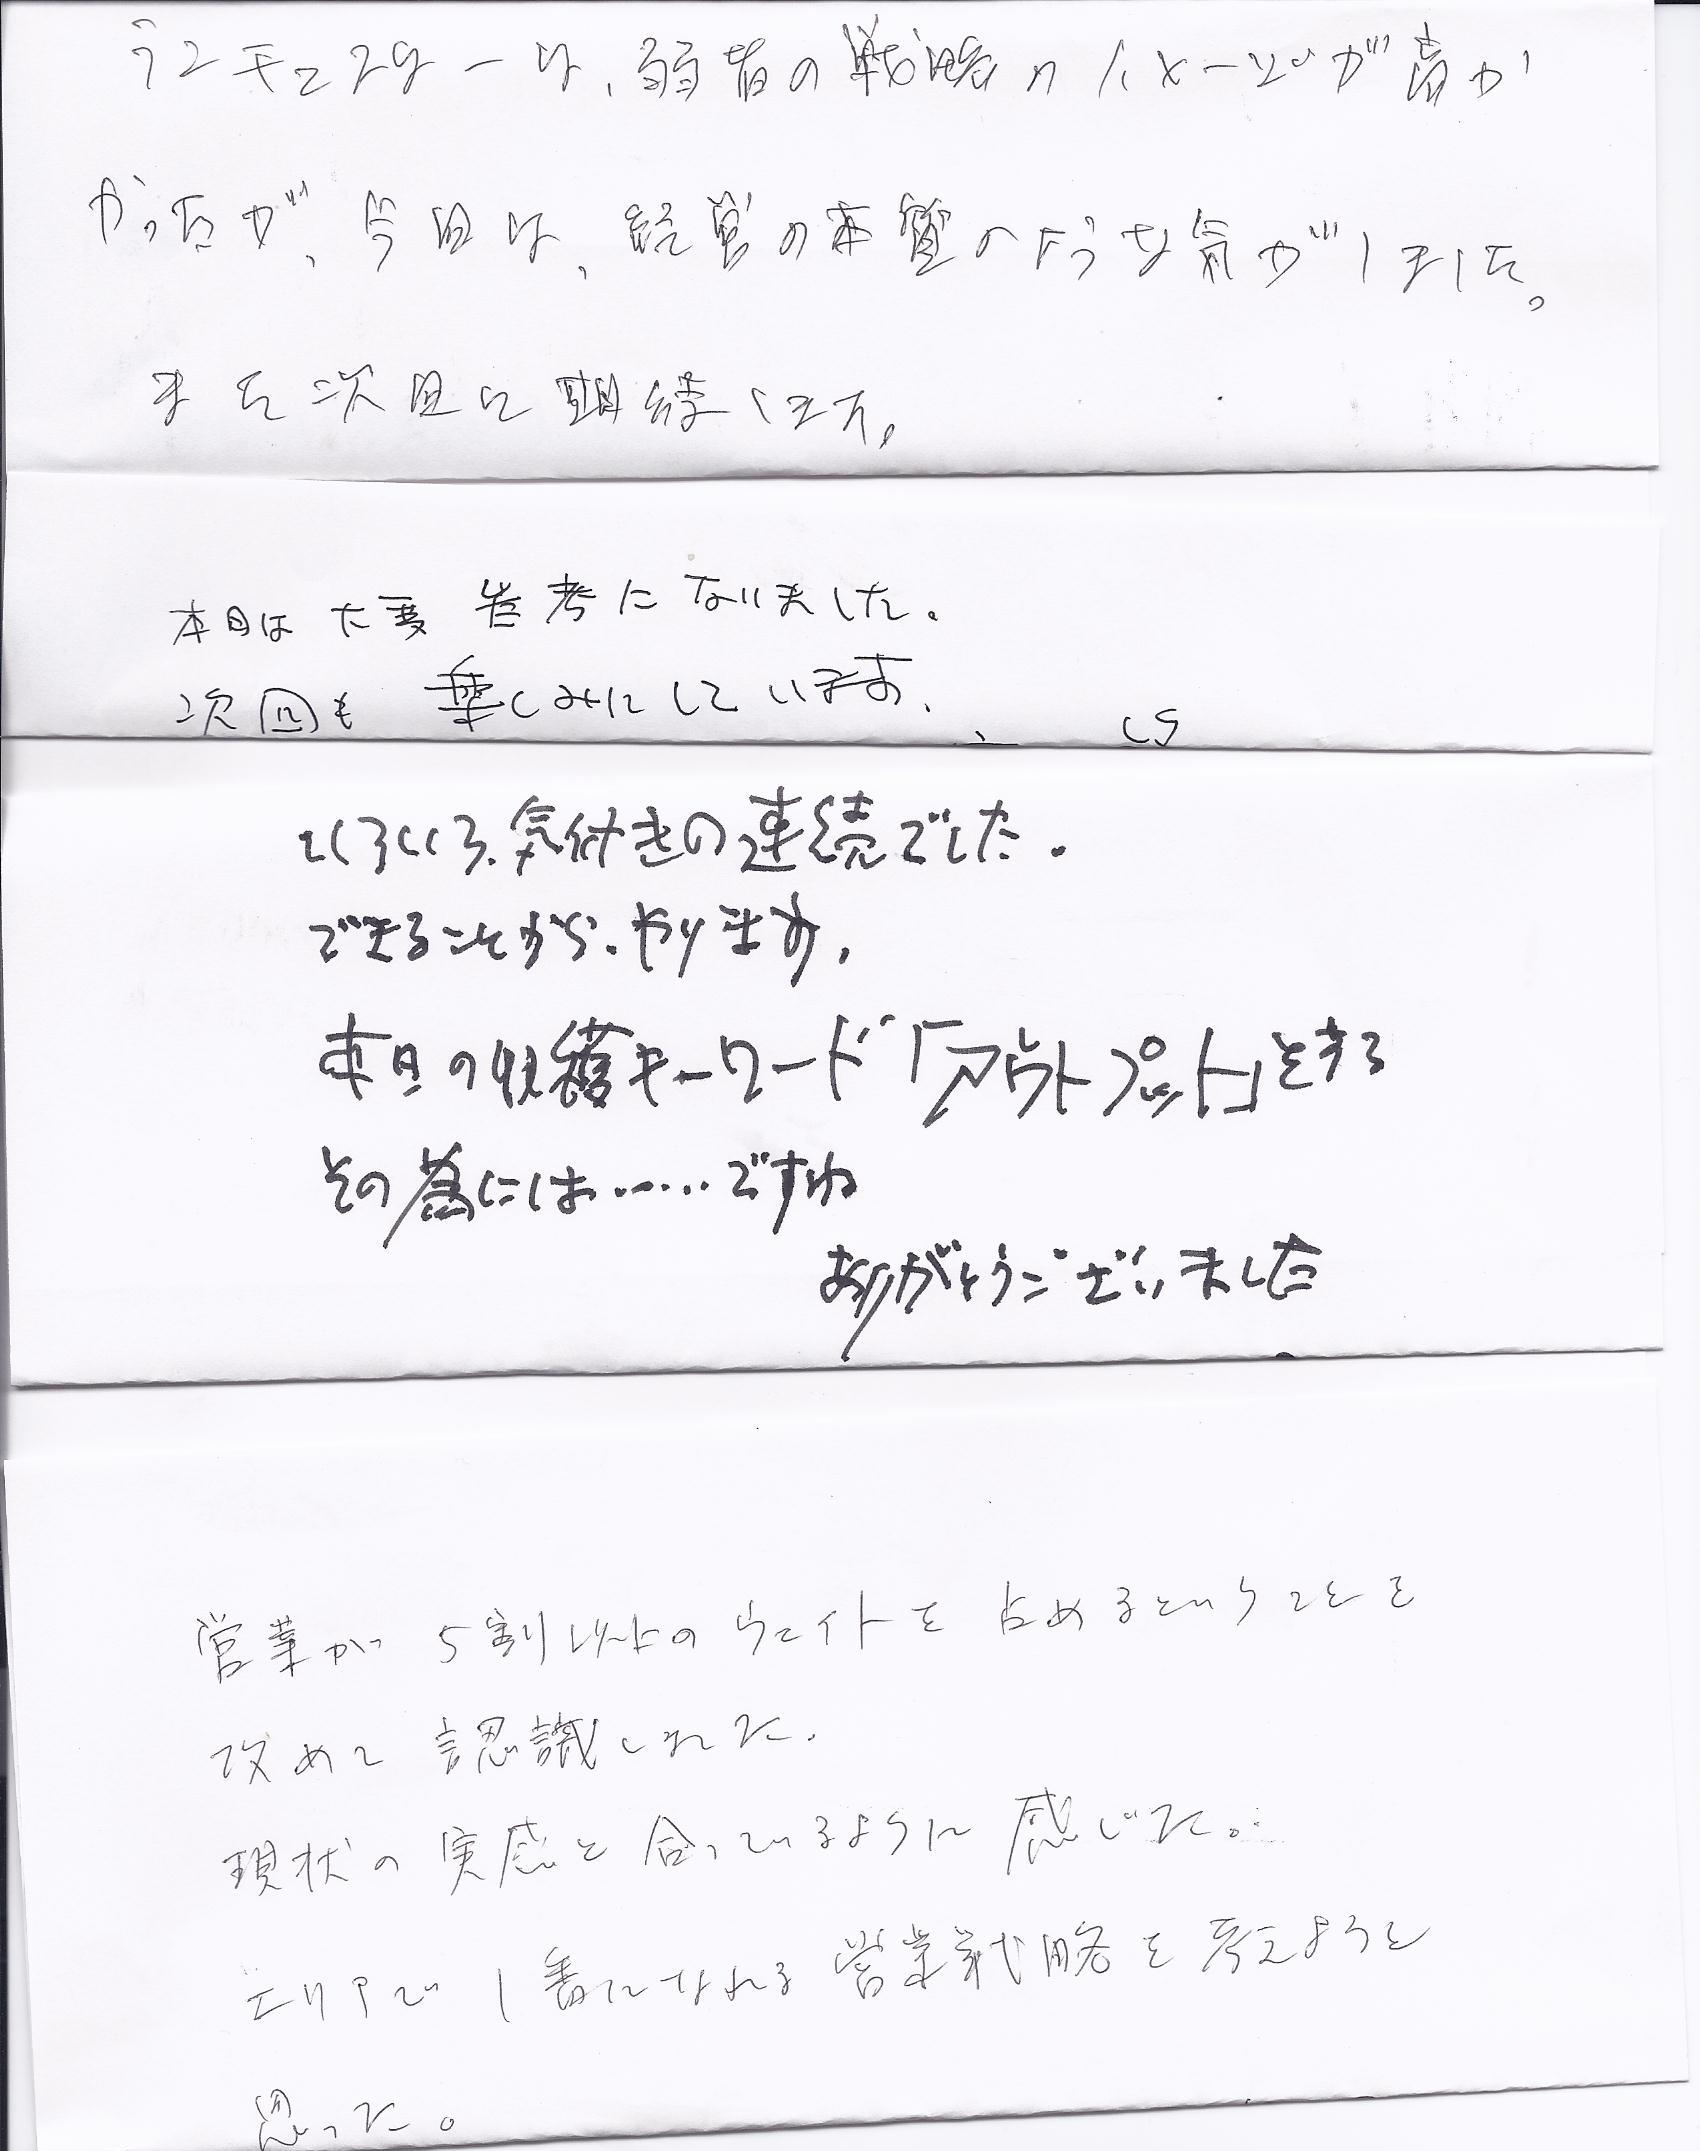 ランチェスターは、弱者の戦略のイメージが高か
かったが、今日は、経営の本質のような気がしました。
また次回に期待します。
本日は大変 参考になりました。
次回も 楽しみにしています。
いろいろ、気付きの連続でした。
できることから、やります。
本日の収穫キーワード「アウトプット」をする
その為には……ですね
ありがとうございました
営業が 5割以上のウェイトを占めるということを
改めて 認識しました。
現状の実感と合っているように感じた。
エリアで1番になれる営業戦略を考えようと
思った。